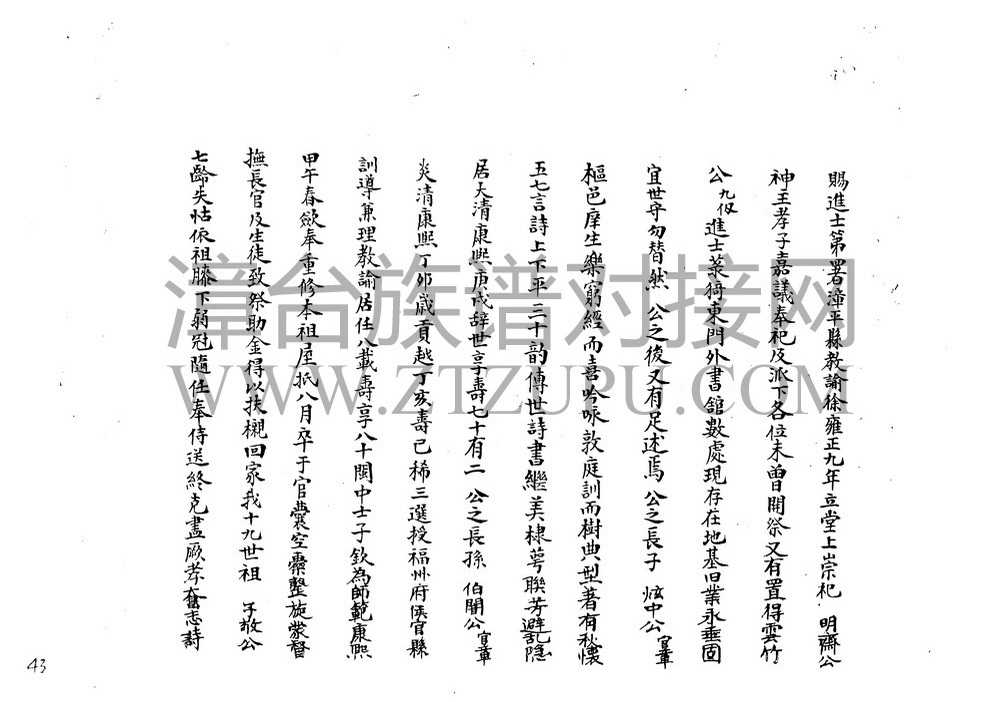 賜進士第署漳平縣教諭徐雍正九年立堂上崇祀 明齋公
神主孝子嘉議奉祀及派下各位未曾開祭又有置得雲竹
公九伋進士菉猗東門外書舘數處現存在地基旧業永垂固
宜世守勿替然 公之後又有足述焉 公之長子 炫中公官章
樞邑庠生樂窮經而喜吟咏敦庭訓而樹典型著有秋懷
五七言詩上下平三十韵傳世詩書繼美棣萼聯芳避乱隐
居大清康熙庚戌辞世享壽七十有二 公之長孫 伯開公官章
炎清康熙丁卯歲貢越丁亥壽已稀三選授福州府侯官縣
訓導兼理教諭居任八載壽享八十閩中士子欽為師範康熙
甲午春歛奉重修本祖屋扺八月卒于官囊空橐罄旋蒙督
撫長官及生徒致祭助金得以扶櫬回家我十九世祖 子敬公
七齡失怙依祖膝下弱冠隨任奉侍送終克盡厥孝奮志詩
43
漳台族谱对接网
WWW.ZTZUPU.COM